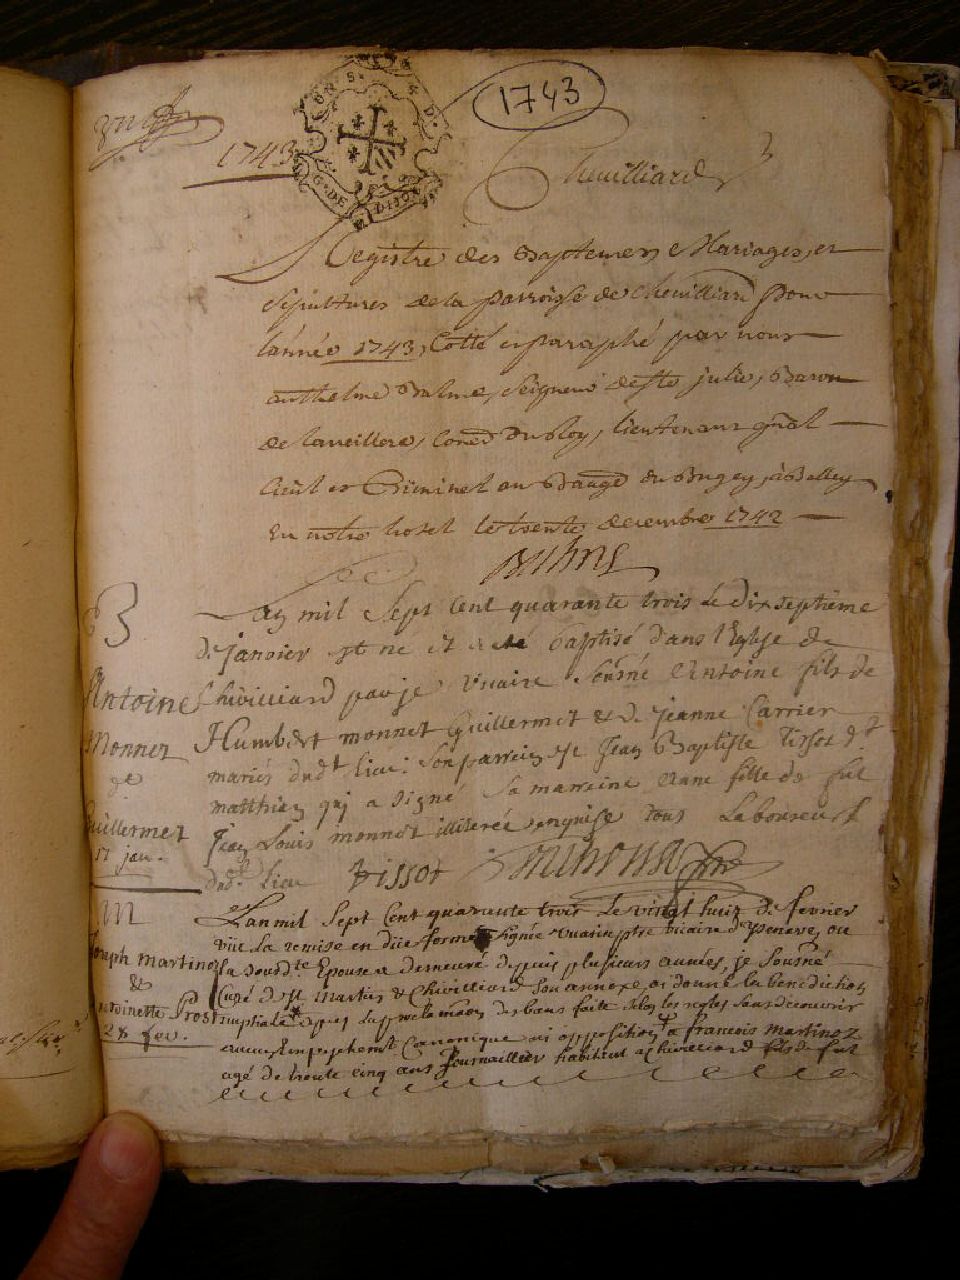 1743
1743
G. DE DIJON
Chevilliard
Registre des Baptemes, Mariages, et
sepultures de la parroisse de Chevilliard pour
lannée 1743, Cotté et paraphé par nous
anthelme Balme, seigneur de ste julie, Baron
de lieutenant gnal
Civil et Criminel au Bauge du Bugey, à Belley
En notre hotel le trente decembre 1742
B
Antoine
Monnet
de
Guillermet
17 jan.
Lan mil Sept Cent quarante trois Le Dix septième
de janvier est né et a eté baptisé dans l'Eglise de
Chivilliard par je vicaire sousné Antoine fils de
Humbert monnet Guillermet & de jeanne Carrier
mariés dudt lieu: son parrein est Jean Baptiste Tissot dt
matthieu qui a signé sa marreine Anne fille de fut
Jean Louis monnet illiterée enquise tous Laboureurs
dudt lieu Tissot
M
Joseph Martinoz
&
Antoinette Prost
28 fev.
Lan mil sept Cent quarante trois Le vingt huit de fevrier
vüe la remise en düe forme signée vicaire d'
la sourdte Epouse a demeuré depuis plusieurs années, je sousné
Curé de St Martin & Chivilliard son annexe, ai donné la benediction
nuptiale apres la proclamaon des bans faite selon les regles sans decouvrir
aucun Empechemt Canonique ni opposition a francois Martinoz
agé de trente cinq ans journaillier habitant a Chivilliard fils de fut